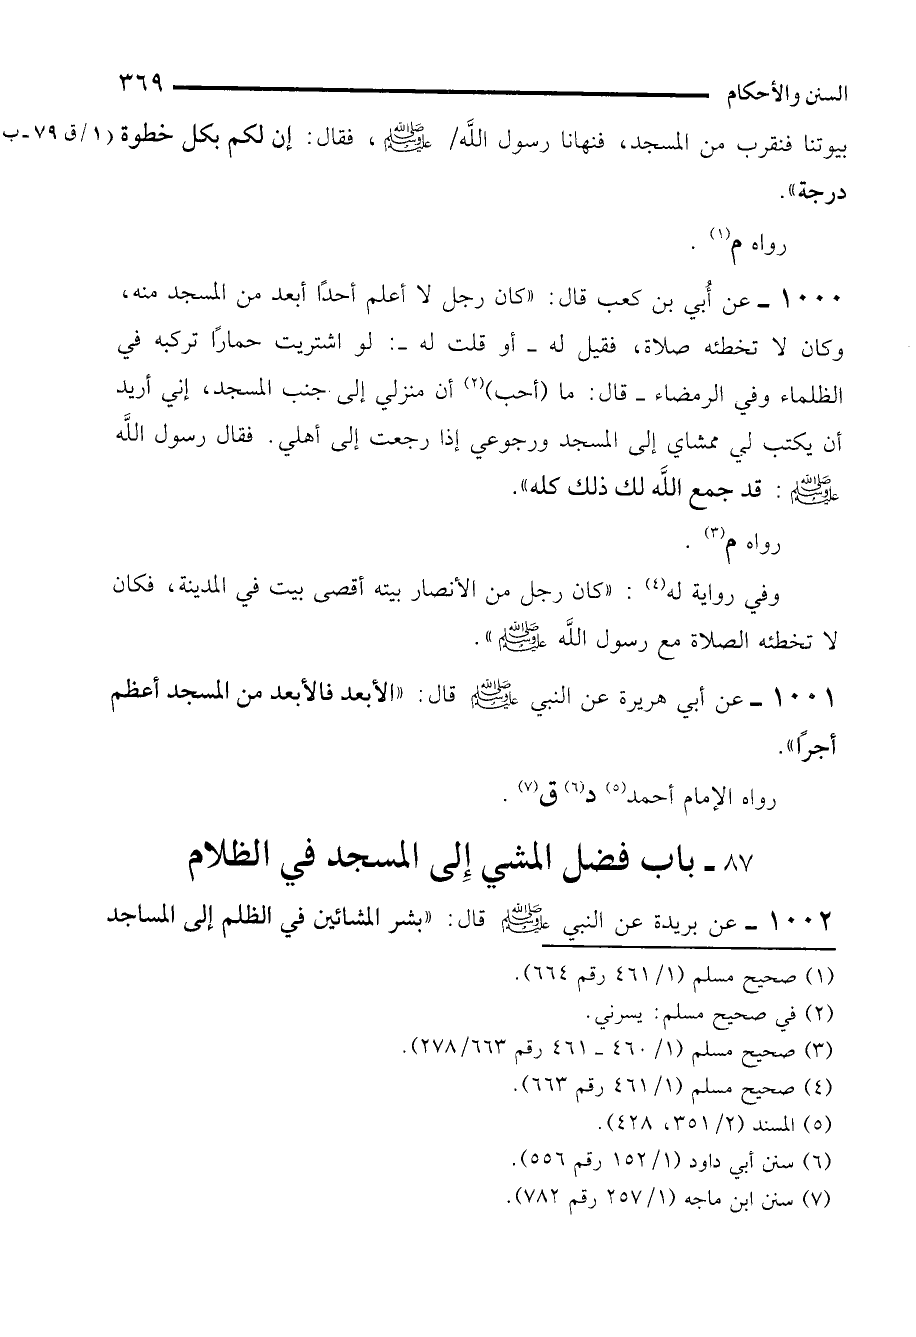 السنن والأحكام ٣٦٩
بيوتنا فنقرب من المسجد، فنهانا رسول اللَّه/ ﷺ ، فقال: إن لكم بكل خطوة (١/ق ٧٩-ب
درجة».
رواه م(١) .
١٠٠٠ ـ عن أُبي بن كعب قال: «كان رجل لا أعلم أحدًا أبعد من المسجد منه،
وكان لا تخطئه صلاة، فقيل له ـ أو قلت له ـ: لو اشتريت حمارًا تركبه في
الظلماء وفي الرمضاء ـ قال: ما (أحب)(٢) أن منزلي إلى جنب المسجد، إني أريد
أن يكتب لي ممشاي إلى المسجد ورجوعي إذا رجعت إلى أهلي. فقال رسول اللَّه
ﷺ : قد جمع اللَّه لك ذلك كله».
رواه م(٣) .
وفي رواية له(٤) : «كان رجل من الأنصار بيته أقصى بيت في المدينة، فكان
لا تخطئه الصلاة مع رسول اللَّه ﷺ».
١٠٠١ ـ عن أبي هريرة عن النبي ﷺ قال: «الأبعد فالأبعد من المسجد أعظم
أجرًا».
رواه الإمام أحمد(٥) د(٦) ق(٧) .
٨٧ ـ باب فضل المشي إِلى المسجد في الظلام
١٠٠٢ ـ عن بريدة عن النبي ﷺ قال: «بشر المشائين في الظلم إلى المساجد
(١) صحيح مسلم (١/ ٤٦١ رقم ٦٦٤).
(٢) في صحيح مسلم: يسرني.
(٣) صحيح مسلم (١/ ٤٦٠ ـ ٤٦١ رقم ٢٧٨/٦٦٣).
(٤) صحيح مسلم (١/ ٤٦١ رقم ٦٦٣).
(٥) المسند (٢/ ٣٥١، ٤٢٨).
(٦) سنن أبي داود (١/ ١٥٢ رقم ٥٥٦).
(٧) سنن ابن ماجه (١/ ٢٥٧ رقم ٧٨٢).